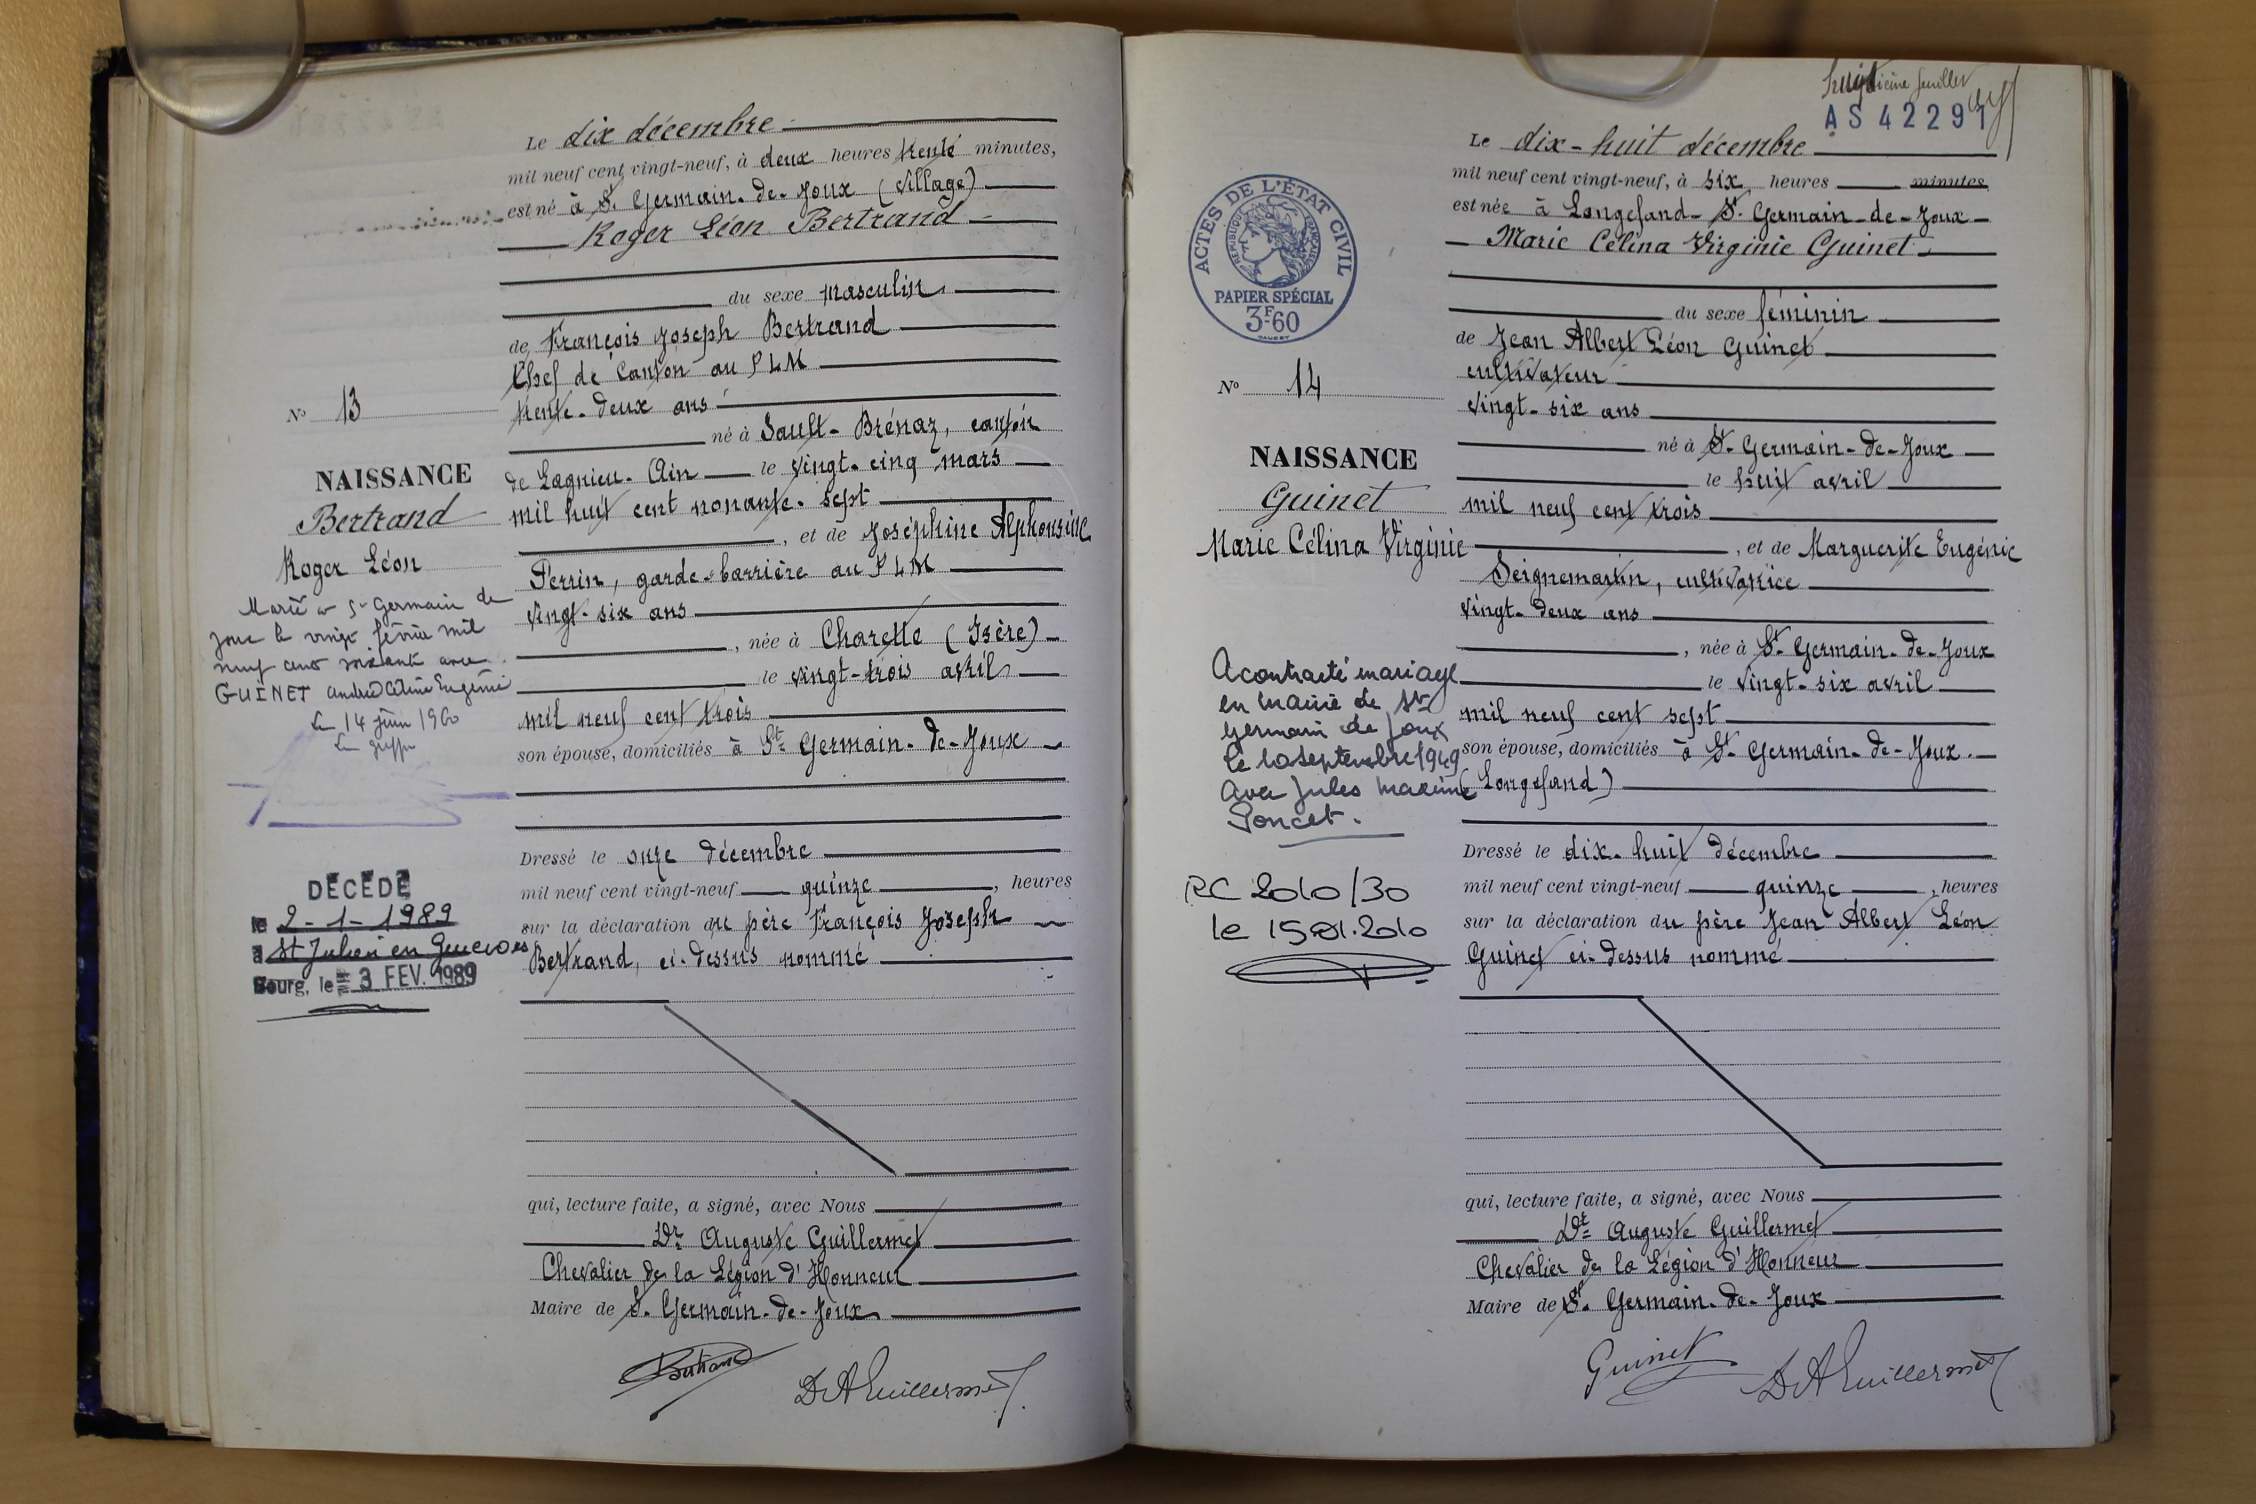 Le dix décembre
mil neuf cent vingt-neuf, à deux heures trente minutes,
est né à St. Germain-de-Joux (village)
Roger Léon Bertrand
du sexe masculin
de François Joseph Bertrand
Chef de Canton au PLM
trente-deux ans
né à Sault-Brénaz, canton
de Lagnieu-Ain le vingt-cinq mars
mil huit cent nonante-sept
, et de Joséphine Alphonsine
Perrin, garde-barrière au PLM
vingt-six ans
, née à Charette (Isère)
le vingt-trois avril
mil neuf cent trois
son épouse, domiciliés à St Germain-de-Joux
Dressé le onze décembre
mil neuf cent vingt-neuf quinze, heures
sur la déclaration du père François Joseph
Bertrand, ci-dessus nommé
qui, lecture faite, a signé, avec Nous
Dr Auguste Guillermet
Chevalier de la Légion d'Honneur
Maire de St. Germain-de-Joux
Bertrand
Dr A Guillermet
No 13
NAISSANCE
Bertrand
Roger Léon
Marié à St Germain de
Joux le vingt février mil
neuf cent soixante avec
GUINET Eugénie
Le 14 juin 1960
DÉCÉDÉ
le 2-1-1989
à St Julien en Genevois
Bourg, le 3 FEV. 1989
huitième feuillet
AS 42291
Le dix-huit décembre
mil neuf cent vingt-neuf, à six heures minutes
est née à Longefand-St. Germain-de-Joux
Marie Célina Virginie Guinet
du sexe féminin
de Jean Albert Léon Guinet
cultivateur
vingt-six ans
né à St. Germain-de-Joux
le huit avril
mil neuf cent trois
, et de Marguerite Eugénie
Seignemartin, cultivatrice
vingt-deux ans
, née à St. Germain-de-Joux
le vingt-six avril
mil neuf cent sept
son épouse, domiciliés à St. Germain-de-Joux
(Longefand)
Dressé le dix-huit décembre
mil neuf cent vingt-neuf quinze, heures
sur la déclaration du père Jean Albert Léon
Guinet ci-dessus nommé
qui, lecture faite, a signé, avec Nous
Dr Auguste Guillermet
Chevalier de la Légion d'Honneur
Maire de St. Germain-de-Joux
Guinet
Dr A Guillermet
ACTES DE L'ÉTAT CIVIL
RÉPUBLIQUE FRANÇAISE
PAPIER SPÉCIAL
3F60
No 14
NAISSANCE
Guinet
Marie Célina Virginie
A contracté mariage
en mairie de St
Germain de Joux
le 10 septembre 1949
avec Jules Maxime
Poncet.
RC 2010/30
le 15.01.2010